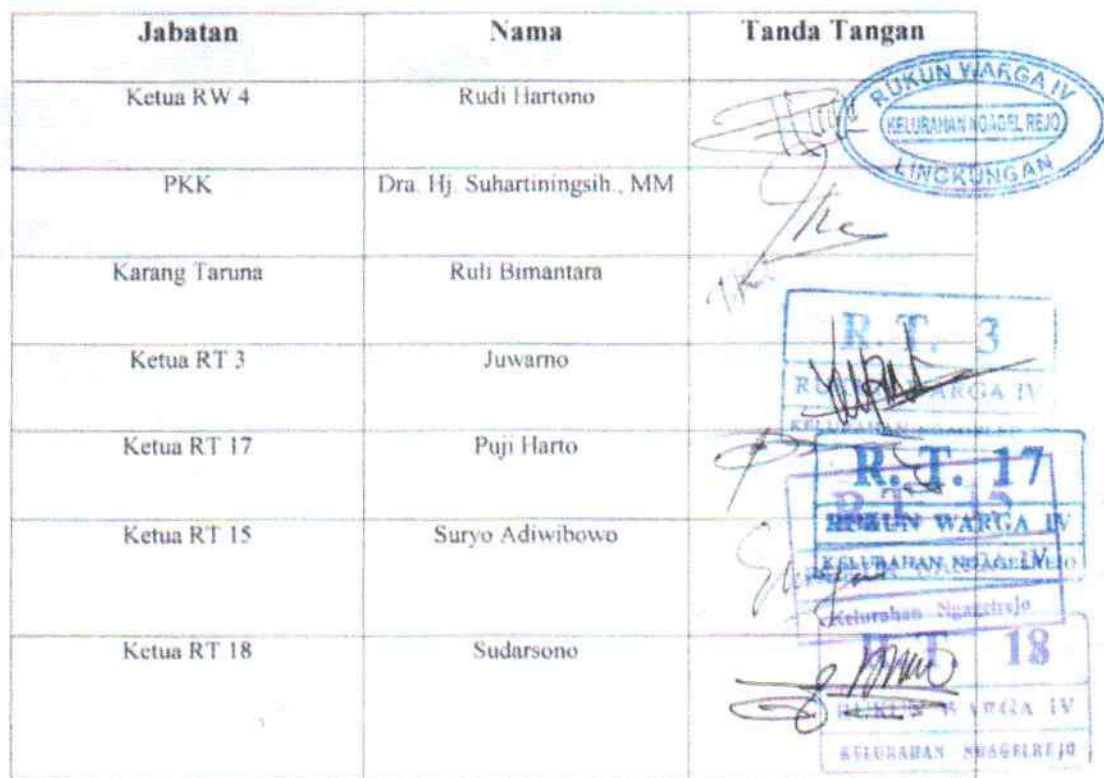 Jabatan Nama Tanda Tangan
Ketua RW 4 Rudi Hartono
RUKUN WARGA IV
KELURAHAN NGAGEL REJO
LINGKUNGAN
PKK Dra. Hj. Suhartiningsih., MM
Karang Taruna Ruli Bimantara
R. T. 3
RUKUN WARGA IV
Ketua RT 3 Juwarno
Ketua RT 17 Puji Harto
R. T. 17
RUKUN WARGA IV
KELURAHAN NGAGELREJO
Ketua RT 15 Suryo Adiwibowo
R.T. 15
Kelurahan Ngagelrejo
Ketua RT 18 Sudarsono
R.T. 18
RUKUN WARGA IV
KELURAHAN NGAGELREJO